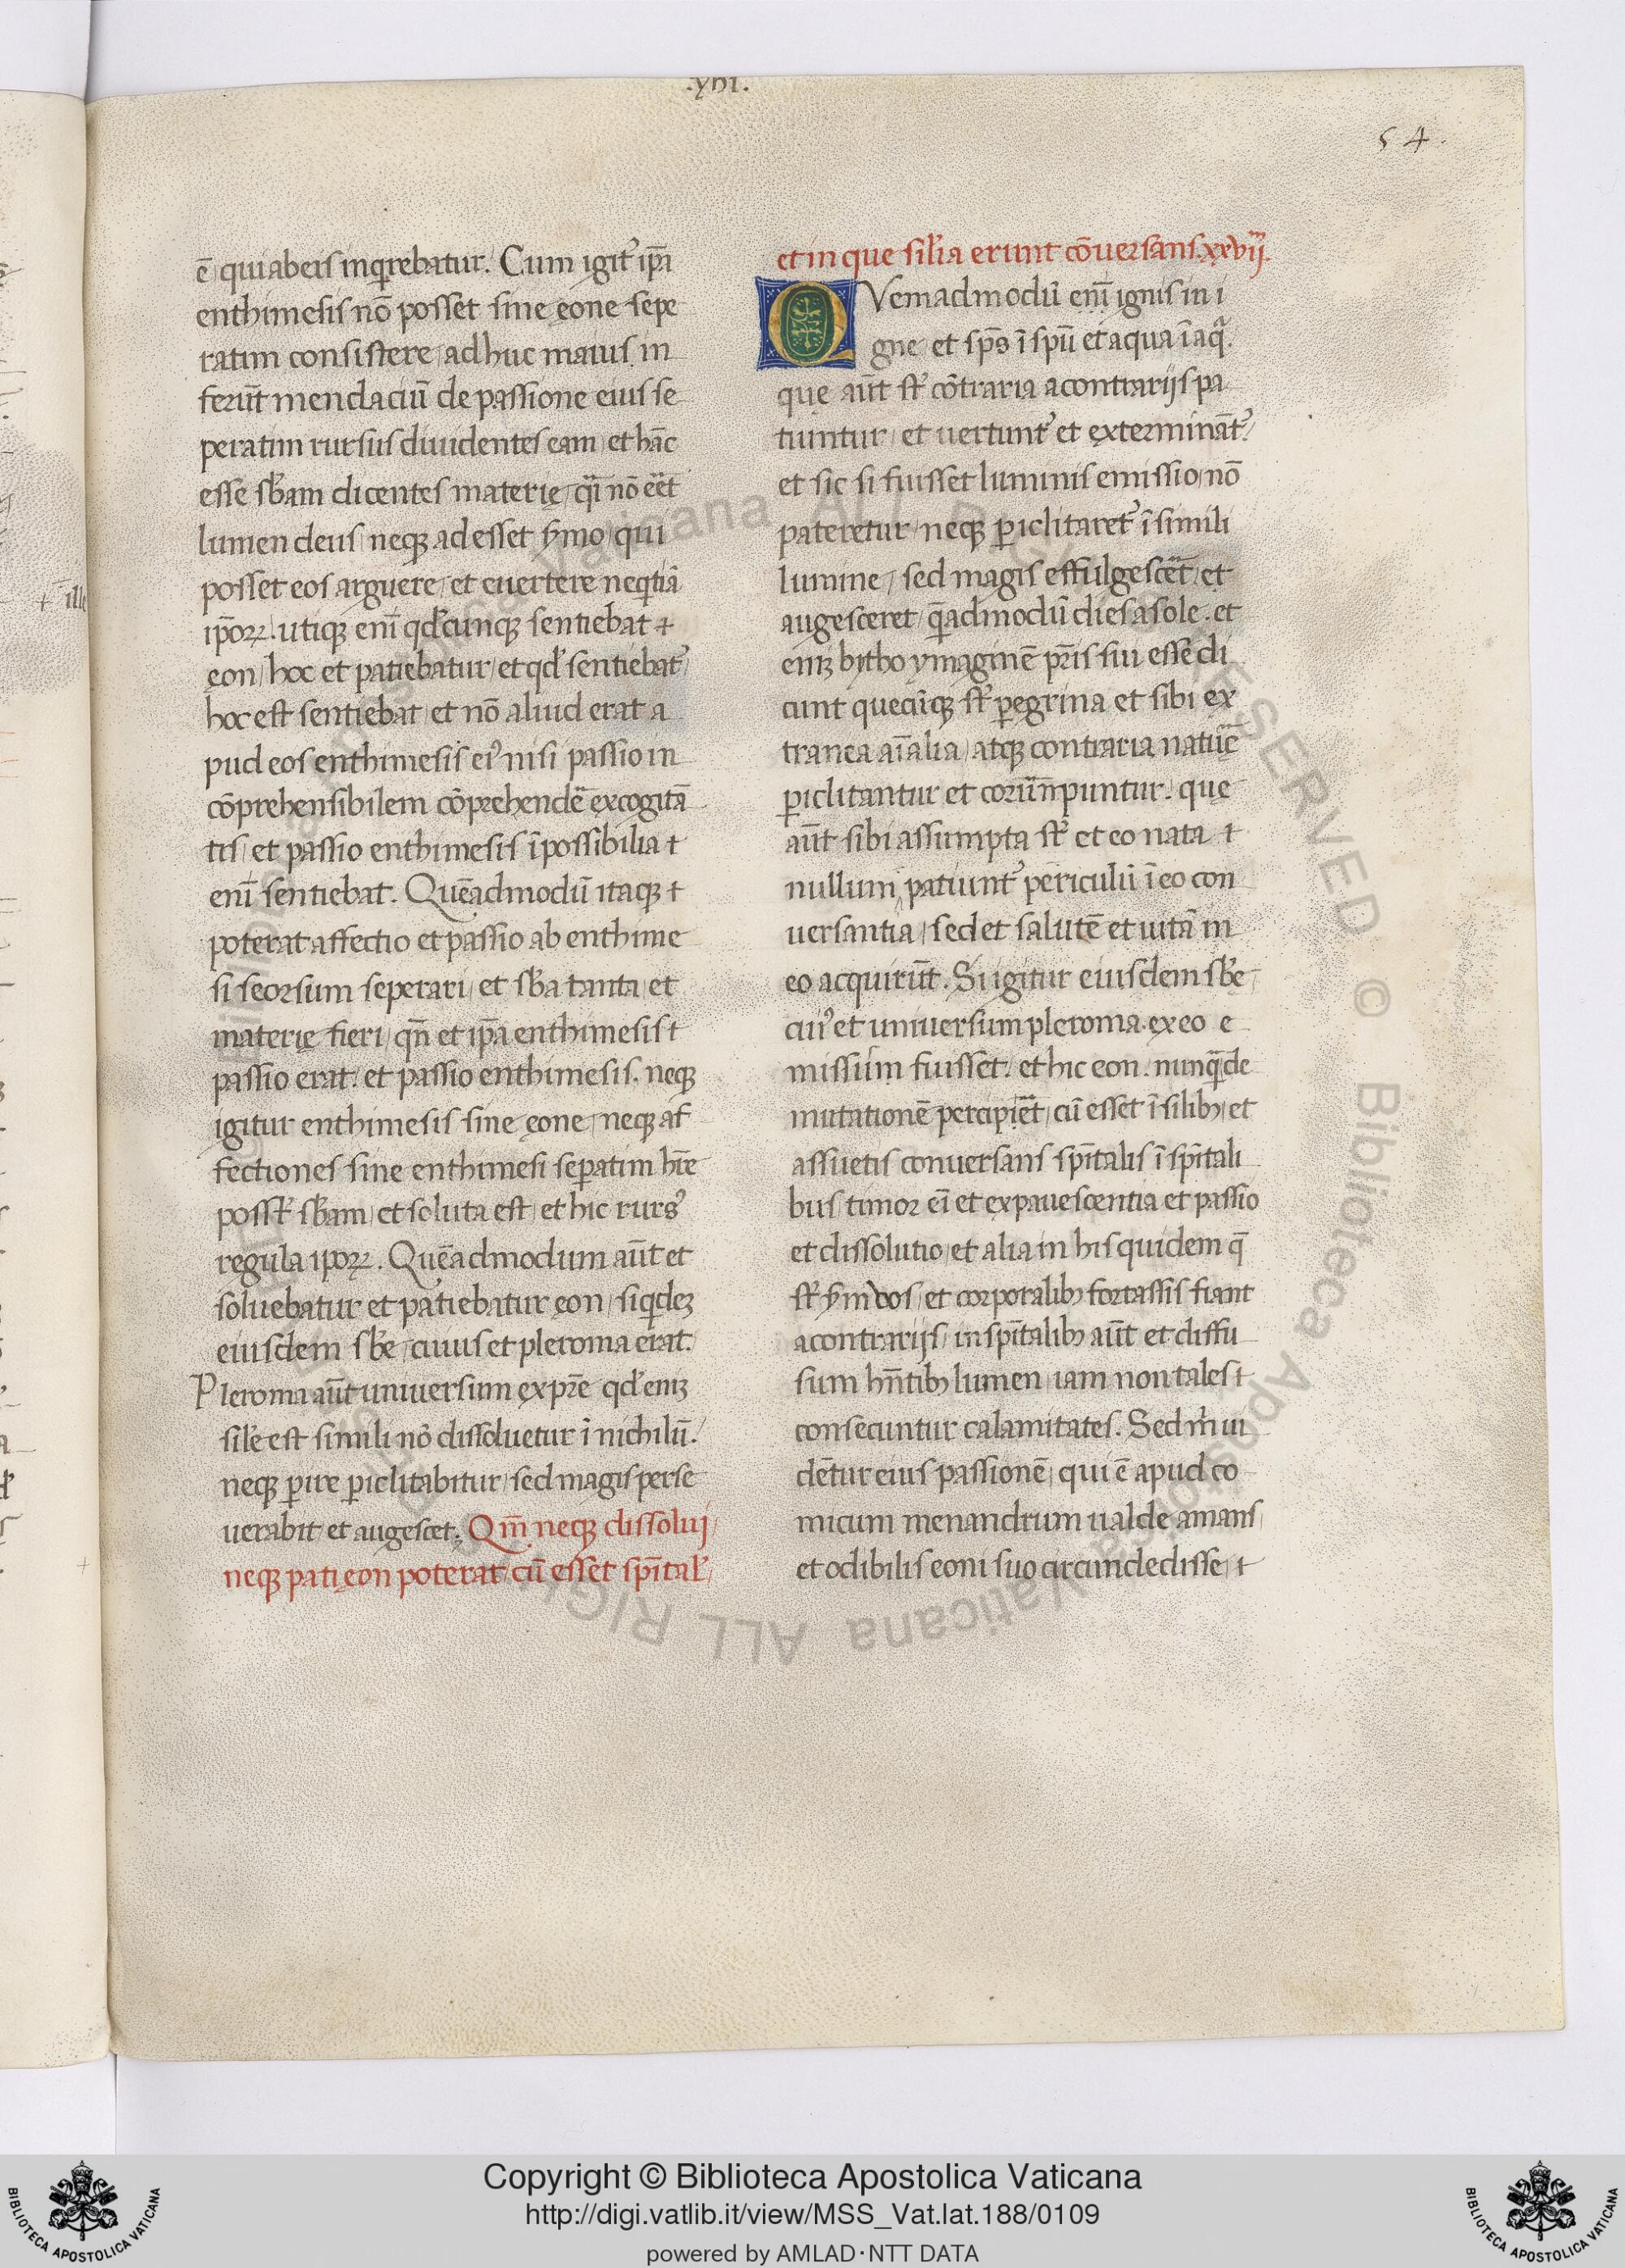 .xvi.
54.
ē qui ab eis inqͥrebatur. Cum igit᷑ ip̄a
enthimesis nō posset sine eone sepe
ratim consistere adhuc maius in
ferūt mendaciū de passione eius se
peratim rursus diuidentes eam et hāc
esse sb̄am dicentes materie qͣi nō eēt
lumen deus neqꝫ adesset ẏmo qui
posset eos arguere et euertere neqͥtiā
ip̄oꝝ. utiqꝫ enī qd̓cunqꝫ sentiebat +
ęon hoc et patiebatur et qd̓ sentiebat᷑
hoc est sentiebat et nō aliud erat a
pud eos enthimesis eiꝰ nisi passio in
cōprehensibilem cōprehendē excogitā
tis et passio enthimesis īpossibilia +
enī sentiebat. Quēadmodū itaqꝫ +
poterat affectio et passio ab enthime
si seorsum seperari et sb̄a tanta et
materię fieri qn̄ et ip̄a enthimesis +
passio erat. et passio enthimesis. neqꝫ
igitur enthimesis sine ęone neqꝫ af
fectiones sine enthimesi sep̱atim hr̄e
poss̄t sb̄am et soluta est et hic rursꝰ
regula ipoꝝ. Quēadmodum aūt et
soluebatur et patiebatur ęon siqͥdeꝫ
eiusdem sb̄e cuius et pleroma erat.
Pleroma aūt uniuersum ex pr̄e qd̓ eniꝫ
sil̓e est simili nō dissoluetur ī nichilū.
neqꝫ ꝑire ꝑiclitabitur sed magis perse
uerabit et augescet. Qm̄ neqꝫ dissolui
neqꝫ pati ęon poterat cū esset sp̄ital̓
et in que sil̓ia erunt cōuersans. xxviij.
QVemadmodū enī ignis in i
gne et sp̄s ī spū et aqua ī aqͣ.
que aūt st̄ cōtraria a contrarijs pa
tiuntur et uertunt᷑ et extermināt᷑
et sic si fuisset luminis emissio nō
pateretur neqꝫ ꝑiclitaret᷑ ī simili
lumine sed magis effulgescēt et
augesceret qͣadmodū dies a sole. et
eniꝫ bytho ymaginē pr̄is sui esse di
cunt quecūqꝫ st̄ ꝑegrina et sibi ex
tranea aīalia atqꝫ contraria natūe
ꝑiclitantur et corrūpuntur. que
aūt sibi assumpta st̄ et eo nata +
nullum patiunt᷑ periculū ī eo con
uersantia sed et salutē et uitā in
eo acquirūt. Si igitur eiusdem sb̄e
cuiꝰ et uniuersum pleroma ex eo e
missum fuisset. et hic eon. nunqͣ de
mutationē percipiēt cū esset ī silibꝫ et
assuetis conuersans sp̄italis ī sp̄itali
bus timor ei et expauescentia et passio
et dissolutio et alia in his quidem q̄
st̄ ẏm nos et corporalibꝫ fortassis fiant
a contrarijs in sp̄italibꝫ aūt et diffu
sum hn̄tibꝫ lumen iam non tales +
consecuntur calamitates. Sed m̄ ui
dētur eius passionē qui ē apud co
micum menandrum ualde amans
et odibilis eoni suo circumdedisse +
+ ille
Copyright © Biblioteca Apostolica Vaticana
http://digi.vatlib.it/view/MSS_Vat.lat.188/0109
powered by AMLAD·NTT DATA
BIBLIOTECA APOSTOLICA VATICANA
BIBLIOTECA APOSTOLICA VATICANA